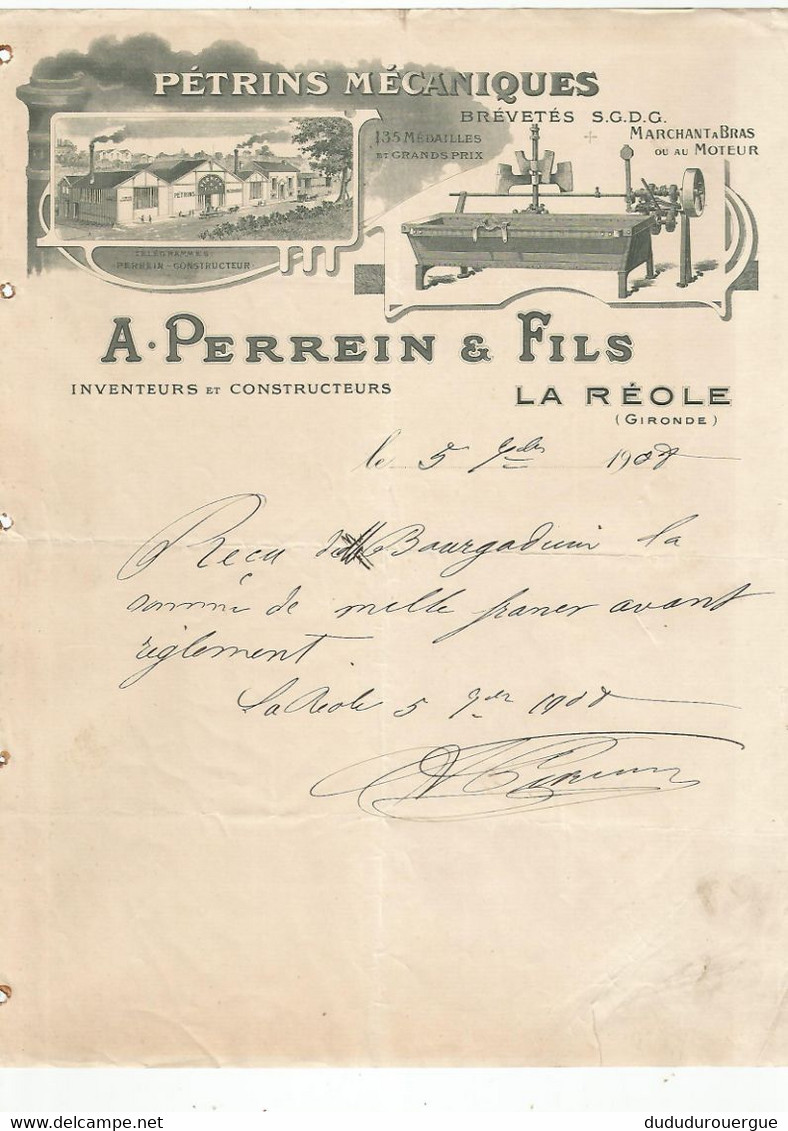 PÉTRINS MÉCANIQUES
BRÉVETÉS S.G.D.G.
135 MÉDAILLES
ET GRANDS PRIX
MARCHANT A BRAS
OU AU MOTEUR
PÉTRINS
TÉLÉGRAMMES:
PERREIN-CONSTRUCTEUR
A. PERREIN & FILS
INVENTEURS ET CONSTRUCTEURS
LA RÉOLE
(GIRONDE)
le 5 1908
Reçu de la
somme de mille francs avant
règlement.
La Réole 5 1908
dududurouergue